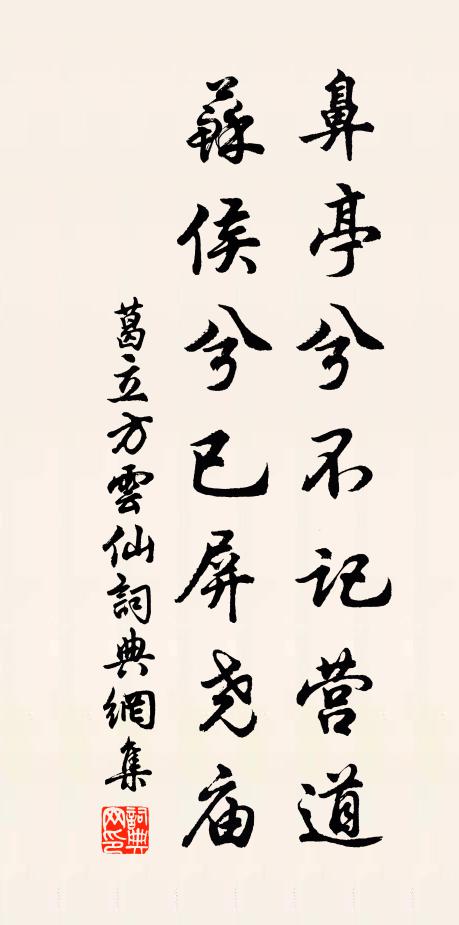 鼻亭兮不记营道
蘇侯兮已屏尧庙
葛立方雲仙詞典網集
詞典网印